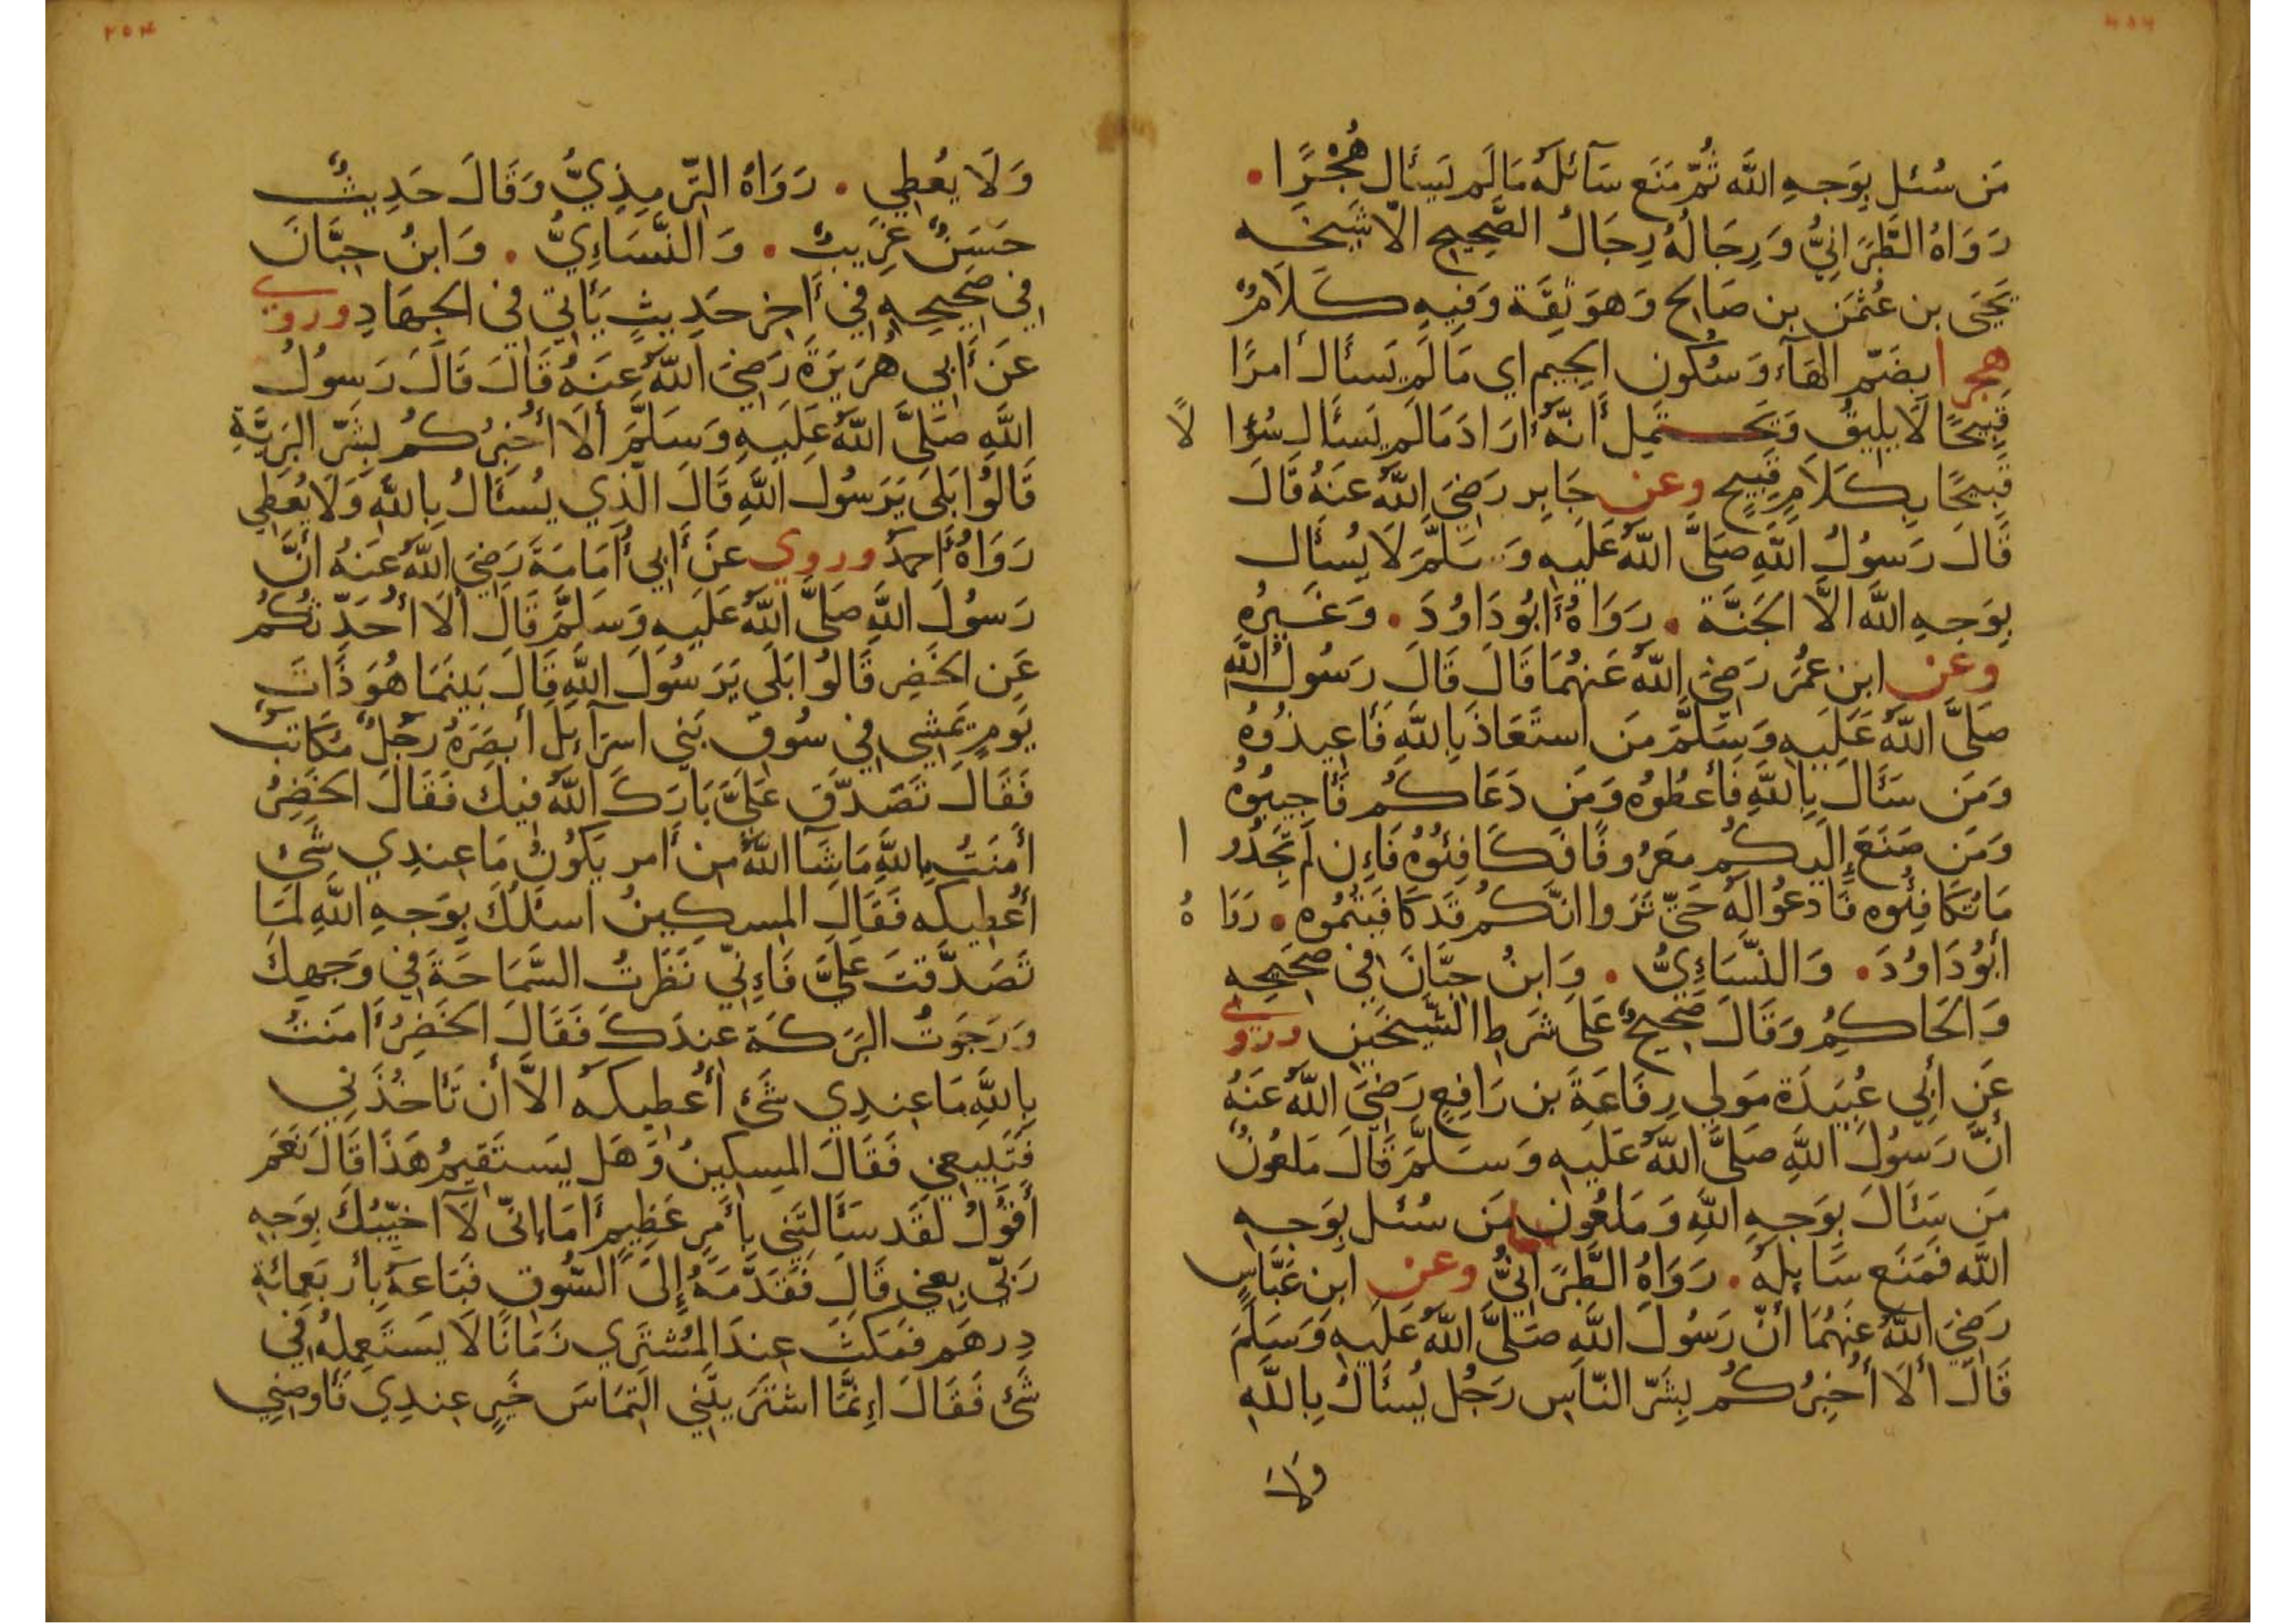 مَن سُئل بِوَجهِ اللَّه ثُمّ مَنَع سَآئلَهُ مَا لَم يَسئَال هُجْرًا .
رَوَاهُ الطَّبَرَانِيُّ وَرِجَالُهُ رِجَالُ الصَّحِيح الّا شَيخَه
يَحيَى بن عُثمَن بن صَالِح وَهوَ ثِقَة وَفِيهِ كَلَامٌ
هجرا بِضَمّ الهَآء وَسُكُون الجِيم اي مَا لَم يَسئَال أمرًا
قَبِيحًا لَا يلِيقُ وَيَحتمِل أَنَّهُ أرَادَ مَا لَم يَسئَال سُؤا لًا
قَبِيحًا بِكَلَامٍ قَبِيحٍ وعن جَابِرٍ رَضِيَ اللَّهُ عَنهُ قَالَ
قَالَ رَسوُلُ اللَّهِ صَلَّى اللَّهُ عَلَيهِ وَسَلَّمَ لَا يُسئَال
بِوَجهِ اللَّه الَّا الجَنَّة . رَوَاهُ أَبُو دَاوُدَ . وَغَيرُهِ
وعن ابنِ عمُرَ رَضِيَ اللَّهُ عَنهُمَا قَالَ قَالَ رَسُولُ اللَّهِ
صَلَّى اللَّهُ عَلَيهِ وَسَلَّمَ مَن استَعَاذَ بِاللَّهِ فَأعِيذُوهُ
وَمَن سَئَالَ بِاللَّهِ فَأعطُوهُ وَمَن دَعَاكُم فَأجِيبُوهُ
وَمَن صَنَعَ إِلَيكُم مَعرُوفًا فَكَافِئُوهُ فَاءِن لَم تَجِدُو ا
مَا تُكَافِئُوه فَأدعُوا لَهُ حَتّى تَرَوا انَّكُم قَد كَافَيتُمُوه . رَوَا هُ
ابُو دَاوُدَ . وَالنَّسَاءِيُّ . وَابنُ حِبَّانَ فِي صَحِيحِه
وَالحَاكِمُ وَقَالَ صَحِيحٌ عَلَى شَرطِ الشَّيخَينِ وروي
عَن أَبِي عُبَيدَة مَولى رِفَاعَةَ بن رَافِعٍ رَضِيَ اللَّهُ عَنهُ
أَنَّ رَسُولَ اللَّهِ صَلَّى اللَّهُ عَلَيهِ وَسَلَّمَ قَالَ مَلعُونٌ
مَن سَئَالَ بِوَجهِ اللَّهِ وَمَلعُون مَن سُئل بِوَجهِ
اللَّه فَمَنَع سَايِلَهُ . رَوَاهُ الطَّبَرَانِيُّ وعن ابن عَبَّاسٍ
رَضِيَ اللَّهُ عَنهُمَا أَنَّ رَسُولَ اللَّهِ صَلَّى اللَّهُ عَلَيهِ وَسَلَّمَ
قَالَ ألَا أُخبِرُكُم بِشَرِّ النّاس رَجُل يُسئَالُ بِاللَّهِ
وَلَا
٢٥٣
وَلَا يُعطِي . رَوَاهُ التِّرمِذِيُّ وَقَالَ حَدِيثٌ
حَسَنٌ غَرِيبٌ . وَالنَّسَاءِيُّ . وَابنُ حِبَّانَ
فِي صَحِيحِهِ فِي أَاخِر حَدِيثٍ يَأَاتِي فِي الجِهَادِ وروي
عَن أَبِي هُرَيرَةَ رَضِيَ اللَّهُ عَنهُ قَالَ قَالَ رَسوُلُ
اللَّهِ صَلَّى اللَّهُ عَلَيهِ وَسَلَّمَ ألَا أُخبِرُكُم بِشَرِّ البَرِيَّةِ
قَالُوا بَلَى يَرَسُولَ اللَّهِ قَالَ الَّذِي يُسئَالُ بِاللَّهِ وَلَا يُعطِي
رَوَاهُ أَحمَدُ وروي عَن أَبِي أُمَامَةَ رَضِيَ اللَّهُ عَنهُ أَنَّ
رَسُولَ اللَّهِ صَلَّى اللَّهُ عَلَيهِ وَسَلَّمَ قَالَ ألَا أُحَدّثكُم
عَن الخَضِر قَالُوا بَلَى يَرَسُولَ اللَّهِ قَالَ بَينَمَا هُوَ ذَاتَ
يَومٍ يَمشِي فِي سُوقِ بَنِي اسرَآءِيل أَبصَرَهُ رَجُلٌ مُكَاتَبٌ
فَقَالَ تَصَدَّق عَلَيَّ بَارَكَ اللَّهُ فِيكَ فَقَالَ الخَضِرُ
أَمَنتُ بِاللَّهِ مَا شَآا اللَّهُ مِن أَمر يَكُونُ مَا عِندِي شَئ
أُعطِيكَه فَقَالَ المِسكِينُ اسئَلُكَ بِوَجهِ اللَّهِ لَمَا
تَصَدَّقتَ عَلَيَّ فَاءِنّي نَظَرتُ السَّمَاحَةَ فِي وَجهِكَ
وَرَجَوتُ البَرَكَة عِندَكَ فَقَالَ الخَضِرُ أَامَنتُ
بِاللَّهِ مَا عِندِي شَئ أُعطِيكَهُ الَّا أن تَأَاخُذَنِي
فَتَبِيعنِي فَقَالَ المِسكِينُ وَهَل يَستَقِيمُ هَذَا قَالَ نَعَم
أَقُولُ لَقَد سَئَالتَنِي بِأَمرٍ عَظِيمٍ أَمَا ءانّي لَآ اخَيّبُكَ بِوَجهِ
رَبّي بِعنِي قَالَ فَقَدَّمَهُ إِلَى السُّوقِ فَبَاعَهُ بِأربَعِمائَةِ
دِرهَم فَمَكَثَ عِندَ المُشتَرِي زَمَانًا لَا يَستَعمِلهُ فِي
شَئ فَقَالَ اءِنَّمَا اشتَرَيتَنِي التِمَاسَ خَيرٍ عِندِي فَأوصِنِي